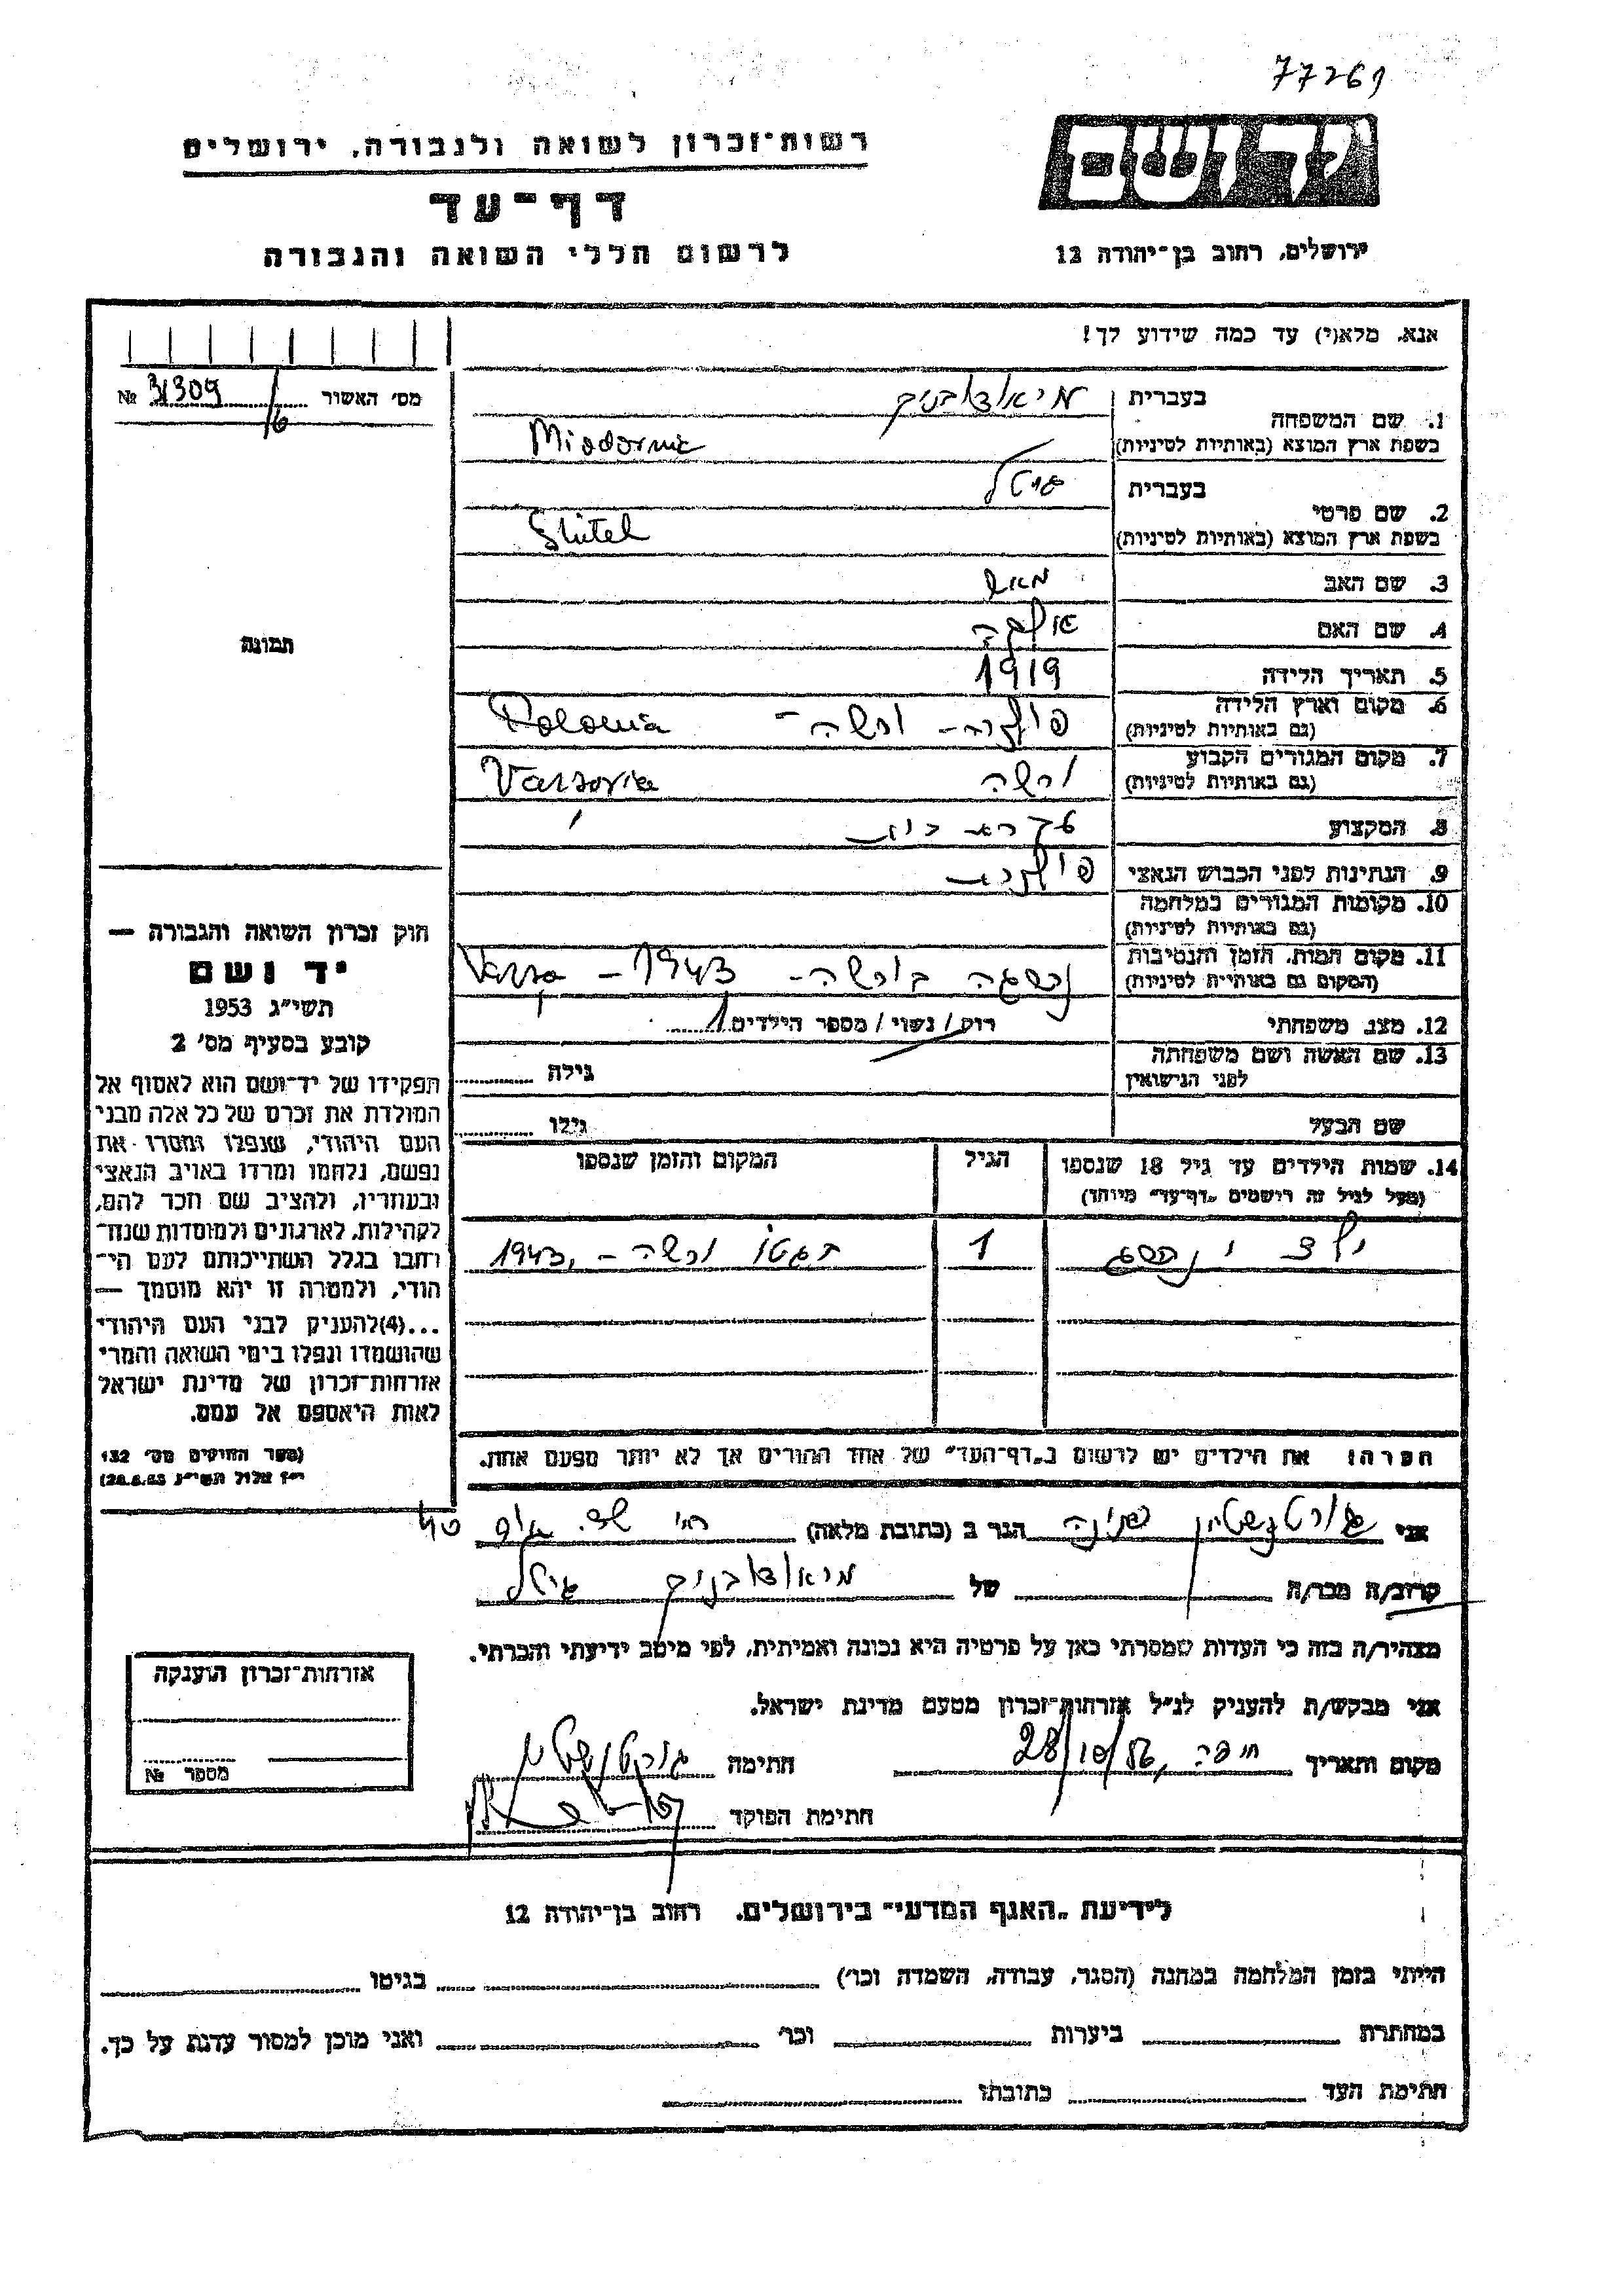 77261
יד ושם
רשות־זכרון לשואה ולגבורה, ירושלים
דף־עד
לרשום חללי השואה והגבורה
ירושלים, רחוב בן־יהודה 12
אנא, מלא(י) עד כמה שידוע לך!
מס' האשור 31309 №
16
1. שם המשפחה
בעברית
בשפת ארץ המוצא (באותיות לטיניות)
2. שם פרטי
בעברית גיטל
בשפת ארץ המוצא (באותיות לטיניות) Shitel
3. שם האב
4. שם האם
5. תאריך הלידה 1919
6. מקום וארץ הלידה פולניה - ורשה - Polonia
(גם באותיות לטיניות)
7. מקום המגורים הקבוע ורשה Varsovia
(גם באותיות לטיניות)
8. המקצוע
9. הנתינות לפני הכבוש הנאצי
10. מקומות המגורים במלחמה
(גם באותיות לטיניות)
11. מקום המות, הזמן והנסיבות נספתה בורשה - 1943 -
(המקום גם באותיות לטיניות)
12. מצב משפחתי רווק / נשוי / מספר הילדים 1
13. שם האשה ושם משפחתה
לפני הנישואין
גילה
שם הבעל
גילו
14. שמות הילדים עד גיל 18 שנספו
(מעל לגיל זה רושמים "דף־עד" מיוחד)
הגיל
המקום והזמן שנספו
ילד 1 ורשה - 1943
תמונה
חוק זכרון השואה והגבורה —
יד ושם
תשי"ג 1953
קובע בסעיף מס' 2
תפקידו של יד־ושם הוא לאסוף אל
המולדת את זכרם של כל אלה מבני
העם היהודי, שנפלו ומסרו את
נפשם, נלחמו ומרדו באויב הנאצי
ובעוזריו, ולהציב שם וזכר להם,
לקהילות, לארגונים ולמוסדות שנח־
רחבו בגלל השתייכותם לעם הי־
הודי, ולמטרה זו יהא מוסמך —
...(4) להעניק לבני העם היהודי
שהושמדו ונפלו בימי השואה והמרי
אזרחות־זכרון של מדינת ישראל
לאות היאספם אל עמם.
(ספר החוקים מס' 132
י"ז אלול תשי"ג 28.8.53)
הערה: את הילדים יש לרשום ב"דף־העד" של אחד ההורים אך לא יותר מפעם אחת.
אני הגר ב (כתובת מלאה)
קרוב/ה מכר/ה של גיטל
מצהיר/ה בזה כי העדות שמסרתי כאן על פרטיה היא נכונה ואמיתית, לפי מיטב ידיעתי והכרתי.
אני מבקש/ת להעניק לנ"ל אזרחות־זכרון מטעם מדינת ישראל.
מקום ותאריך חיפה, 28/10/56 חתימה
חתימת הפוקד
אזרחות־זכרון הוענקה
מספר №
לידיעת "האגף המדעי" בירושלים, רחוב בן־יהודה 12
הייתי בזמן המלחמה במחנה (הסגר, עבודה, השמדה וכו') בגיטו
במחתרת ביערות וכו' ואני מוכן למסור עדות על כך.
חתימת העד כתובתו